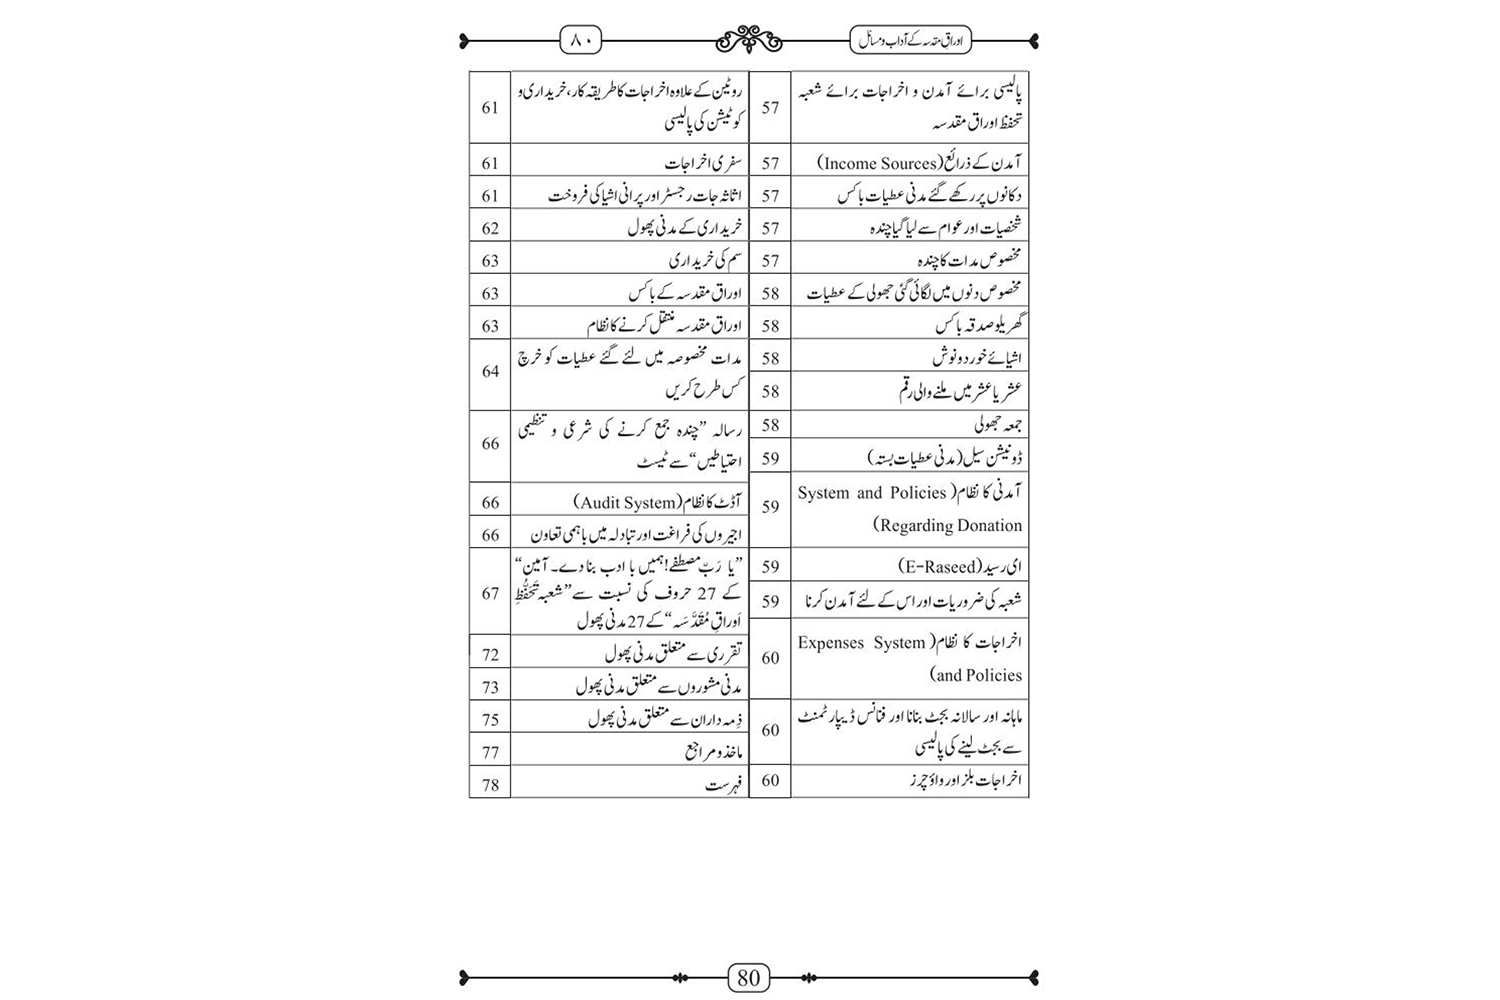 اوراقِ مقدسہ کے آداب و مسائل
۸۰
پالیسی برائے آمدن و اخراجات برائے شعبہ
تحفظ اوراق مقدسہ
57
آمدن کے ذرائع (Income Sources)
57
دکانوں پر رکھے گئے مدنی عطیات باکس
57
شخصیات اور عوام سے لیا گیا چندہ
57
مخصوص مدات کا چندہ
57
مخصوص دنوں میں لگائی گئی جھولی کے عطیات
58
گھریلو صدقہ باکس
58
اشیائے خورد و نوش
58
عشر یا عشر میں ملنے والی رقم
58
جمعہ جھولی
58
ڈونیشن سیل (مدنی عطیات بستہ)
59
آمدنی کا نظام (System and Policies
Regarding Donation)
59
ای رسید (E-Raseed)
59
شعبہ کی ضروریات اور اس کے لئے آمدن کرنا
59
اخراجات کا نظام (Expenses System
and Policies)
60
ماہانہ اور سالانہ بجٹ بنانا اور فنانس ڈیپارٹمنٹ
سے بجٹ لینے کی پالیسی
60
اخراجات بلز اور واؤچرز
60
روٹین کے علاوہ اخراجات کا طریقہ کار، خریداری و
کوٹیشن کی پالیسی
61
سفری اخراجات
61
اثاثہ جات رجسٹر اور پرانی اشیا کی فروخت
61
خریداری کے مدنی پھول
62
سم کی خریداری
63
اوراق مقدسہ کے باکس
63
اوراق مقدسہ منتقل کرنے کا نظام
63
مدات مخصوصہ میں لئے گئے عطیات کو خرچ
کس طرح کریں
64
رسالہ ”چندہ جمع کرنے کی شرعی و تنظیمی
احتیاطیں“ سے ٹیسٹ
66
آڈٹ کا نظام (Audit System)
66
اجیروں کی فراغت اور تبادلہ میں باہمی تعاون
66
”یا رَبِّ مصطفٰے! ہمیں با ادب بنا دے۔ آمین“
کے 27 حروف کی نسبت سے ”شعبہ تَحَفُّظِ
اَوراقِ مُقَدَّسَہ“ کے 27 مدنی پھول
67
تقرری سے متعلق مدنی پھول
72
مدنی مشوروں سے متعلق مدنی پھول
73
ذِمہ داران سے متعلق مدنی پھول
75
ماخذ و مراجع
77
فہرست
78
80